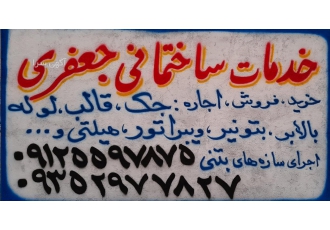 خدمات ساختمانی جعفری
خرید، فروش، اجاره: جک، قالب، لوله
بالابر، بتونیر، ویبراتور، هیلتی و...
اجرای سازه‌های بتنی
۰۹۱۲۵۵۹۷۸۷۵
۰۹۳۵۲۹۷۷۸۲۷